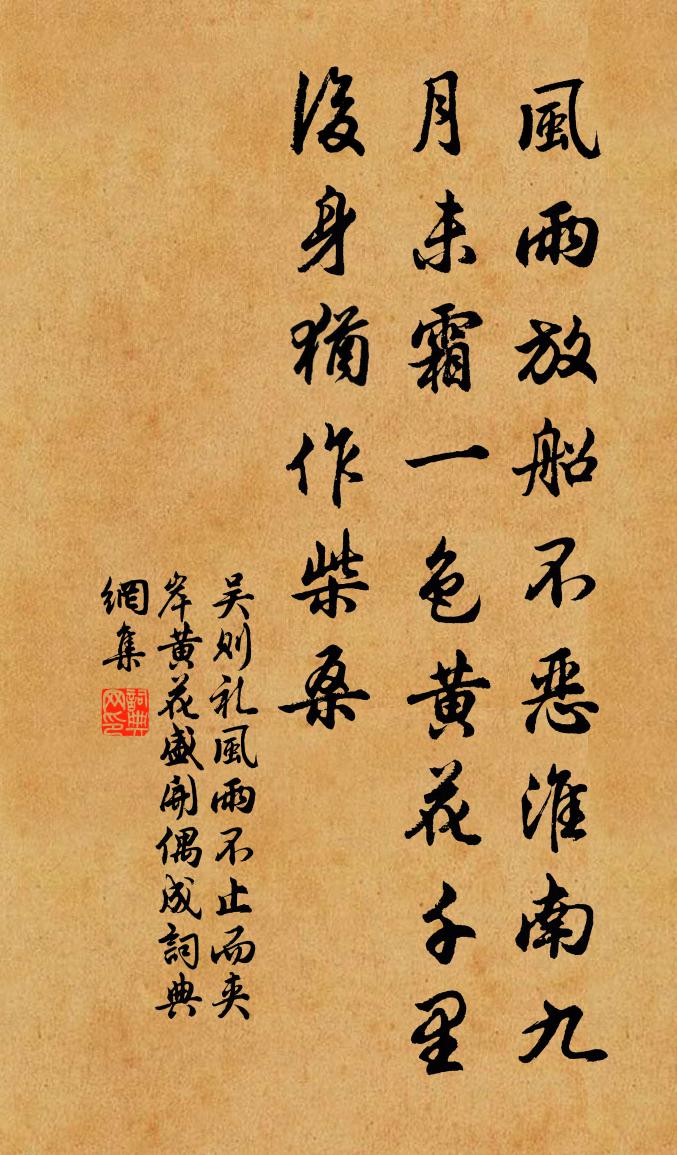 風雨放船不惡淮南九
月未霜一色黃花千里
後身猶作柴桑
吴則礼風雨不止而夾
岸黃花盛開偶成詞典
網集
詞典網印